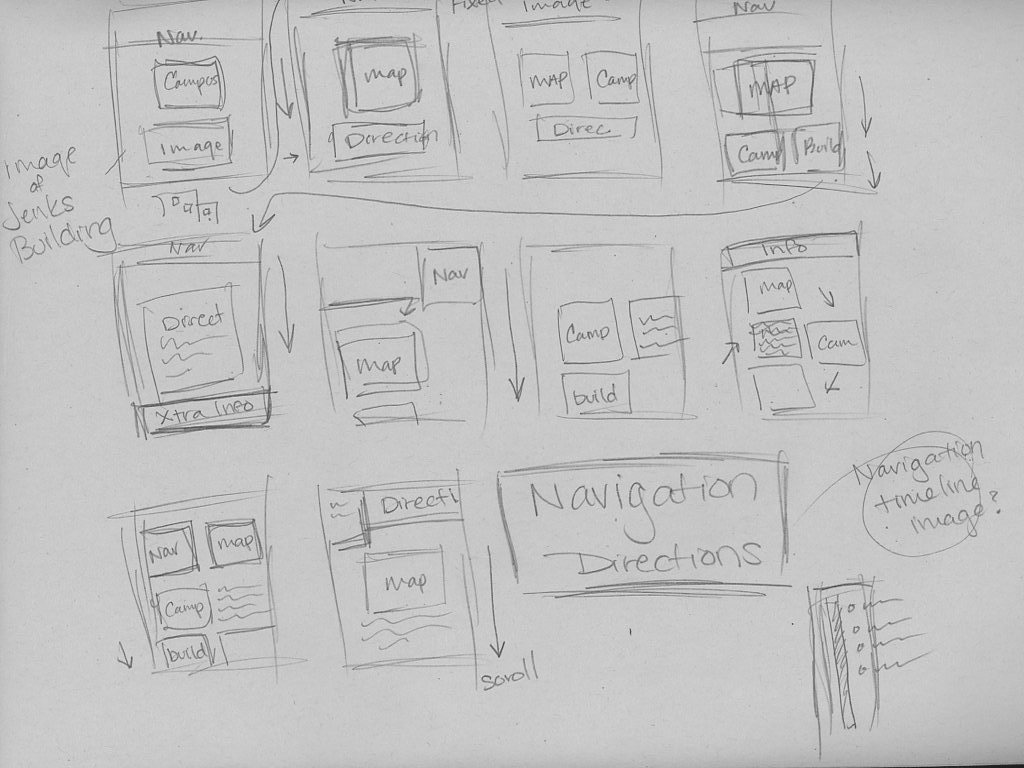 Nav.
Campus
Image
Image
of
Jenks
Building
Map
Direction
Fixed
Image
MAP
Camp
Direc
Nav
MAP
Camp
Build
Nav
Direct
Xtra Info
Nav
Map
Camp
build
Info
Map
Cam
Nav
map
Camp
build
Directi
map
scroll
Navigation
Directions
Navigation
timeline
image?